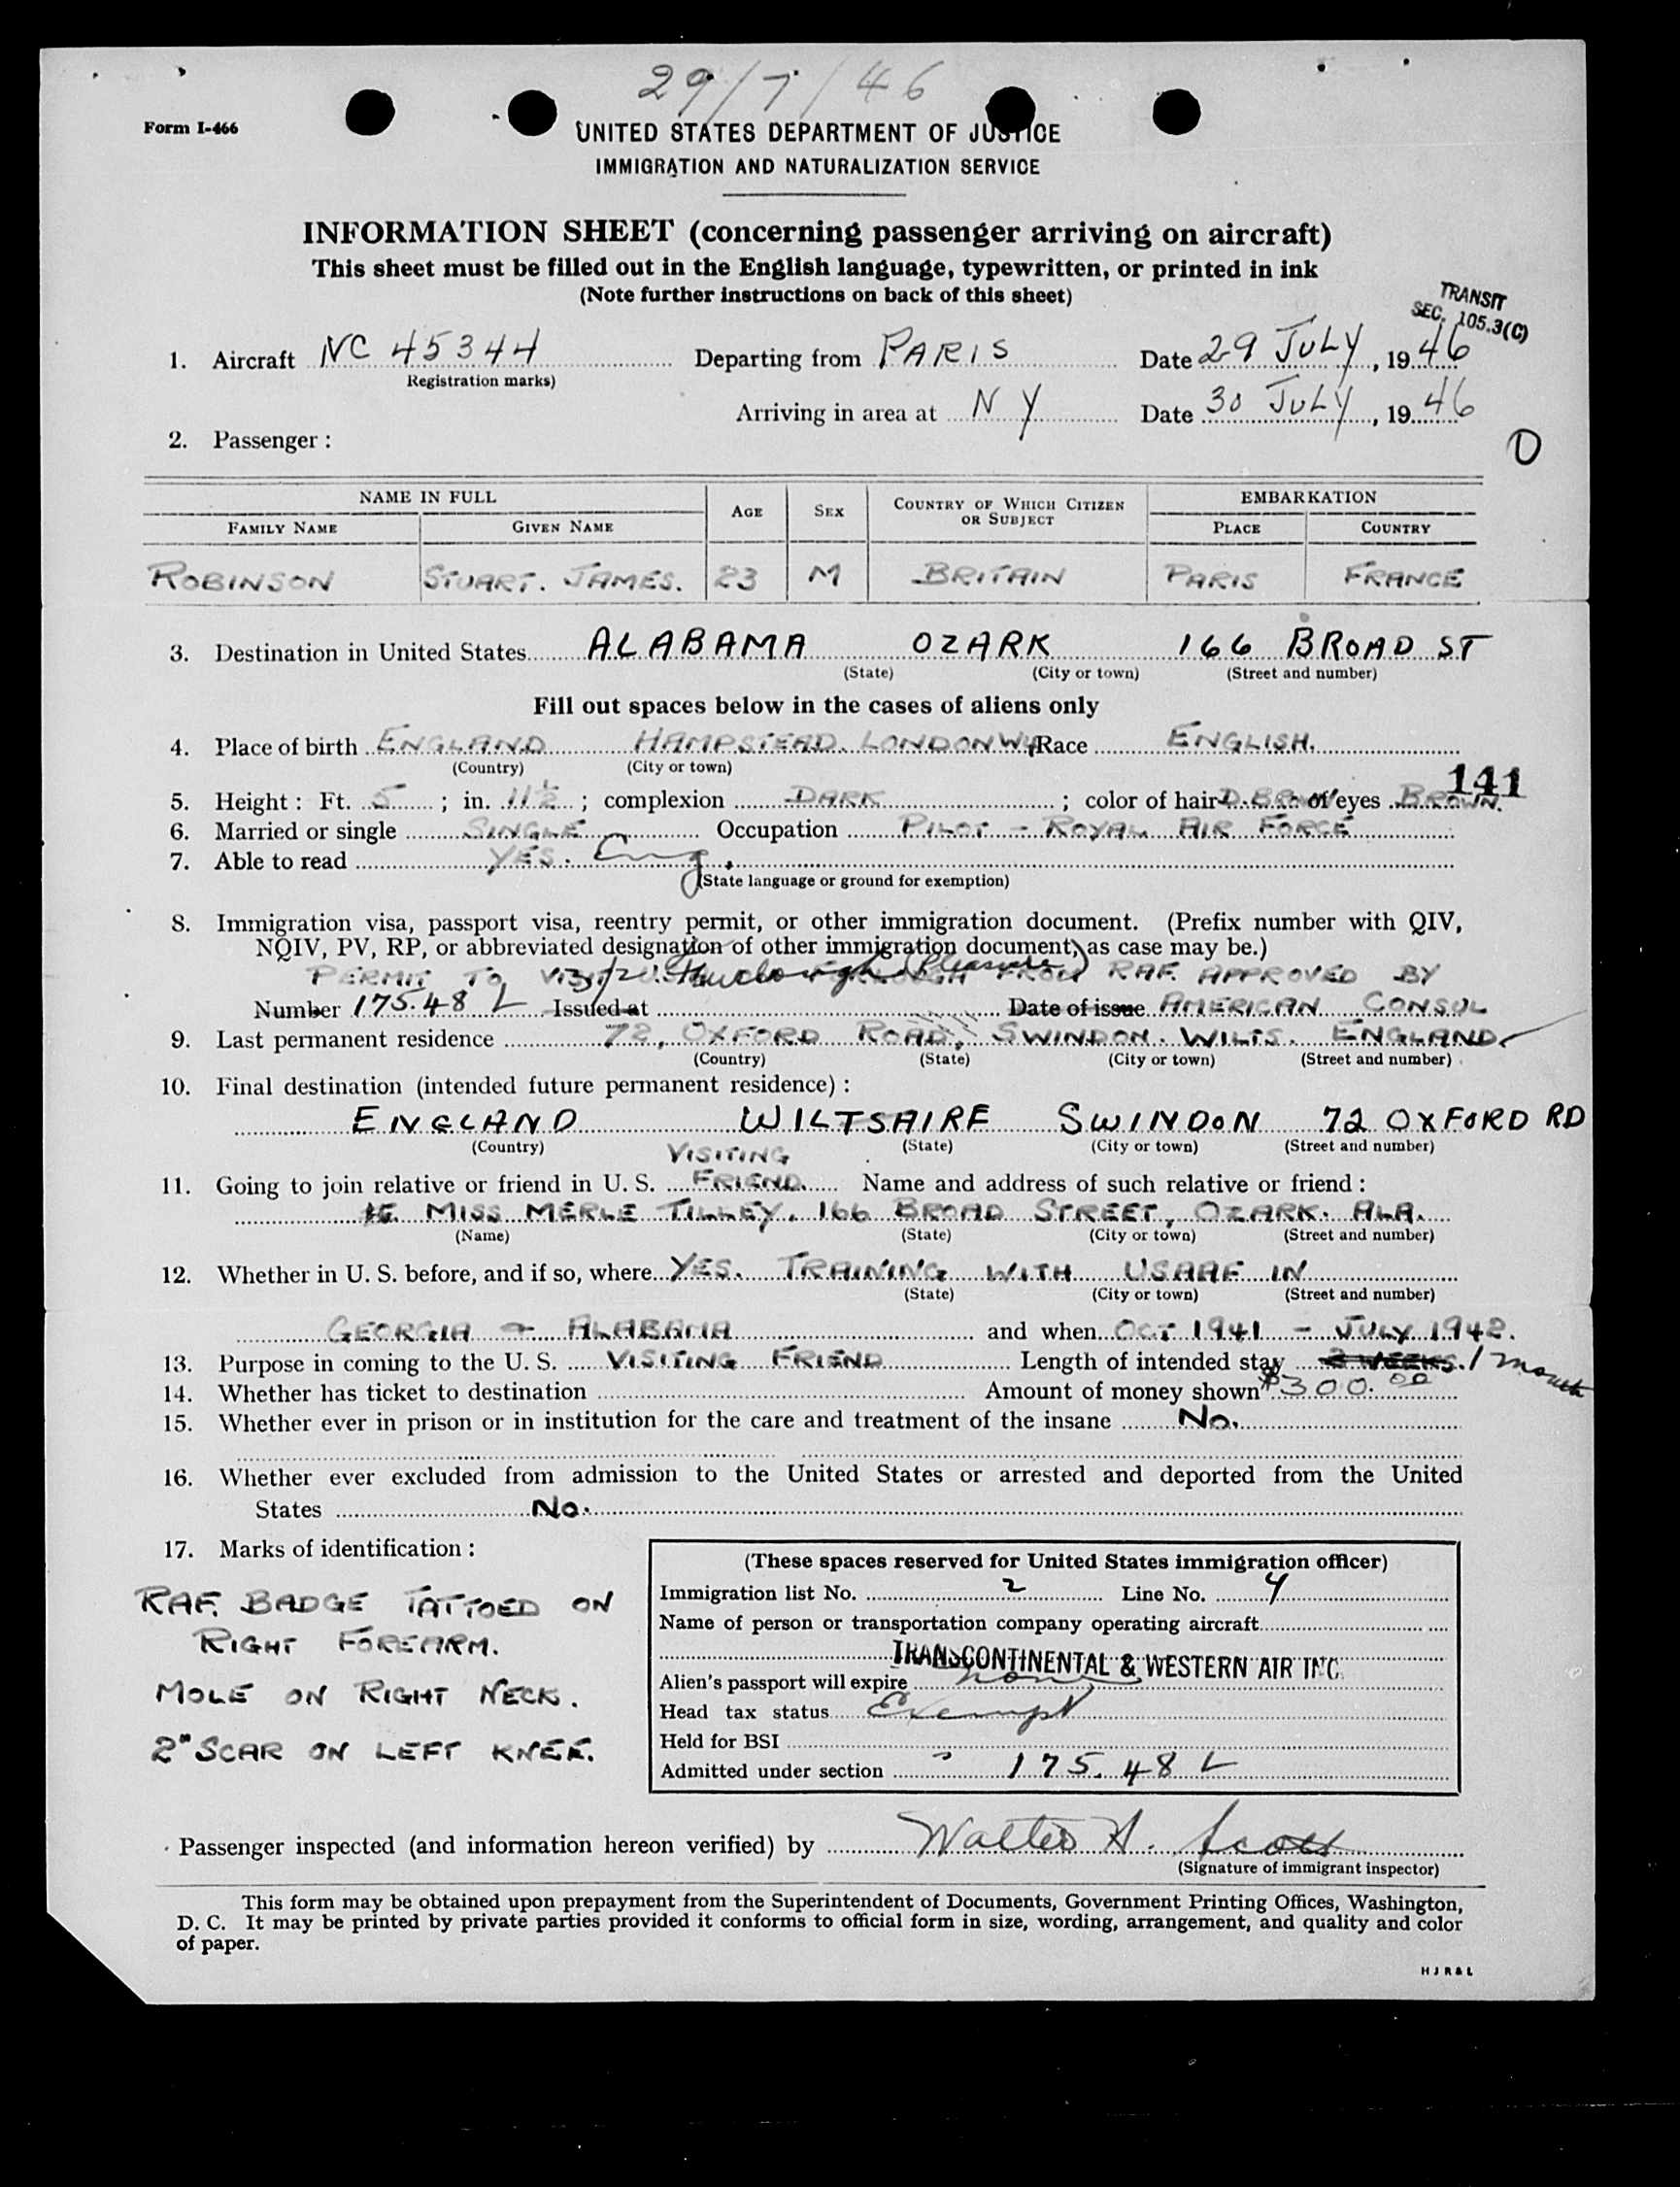 29/7/46
Form I-466
UNITED STATES DEPARTMENT OF JUSTICE
IMMIGRATION AND NATURALIZATION SERVICE
INFORMATION SHEET (concerning passenger arriving on aircraft)
This sheet must be filled out in the English language, typewritten, or printed in ink
(Note further instructions on back of this sheet)
TRANSIT
SEC. 105.3(C)
1. Aircraft NC 45344 Departing from PARIS Date 29 JULY, 1946
Registration marks)
Arriving in area at N Y Date 30 JULY, 1946
2. Passenger :
D
NAME IN FULL AGE SEX COUNTRY OF WHICH CITIZEN OR SUBJECT EMBARKATION
FAMILY NAME GIVEN NAME PLACE COUNTRY
ROBINSON STUART. JAMES. 23 M BRITAIN PARIS FRANCE
3. Destination in United States ALABAMA OZARK 166 BROAD ST
(State) (City or town) (Street and number)
Fill out spaces below in the cases of aliens only
4. Place of birth ENGLAND HAMPSTEAD. LONDON W4 Race ENGLISH.
(Country) (City or town)
141
5. Height : Ft. 5 ; in. 11½ ; complexion DARK ; color of hair D. BROWN of eyes BROWN.
6. Married or single SINGLE Occupation PILOT - ROYAL AIR FORCE
7. Able to read YES. Eng.
(State language or ground for exemption)
8. Immigration visa, passport visa, reentry permit, or other immigration document. (Prefix number with QIV,
NQIV, PV, RP, or abbreviated designation of other immigration document, as case may be.)
PERMIT TO VISIT U.S. Furlough (Pleasure) FROM RAF. APPROVED BY
Number 175.48 L Issued at Date of issue AMERICAN CONSOL
9. Last permanent residence 72, OXFORD ROAD, SWINDON. WILTS. ENGLAND
(Country) (State) (City or town) (Street and number)
10. Final destination (intended future permanent residence) :
ENGLAND WILTSHIRE SWINDON 72 OXFORD RD
(Country) (State) (City or town) (Street and number)
VISITING
11. Going to join relative or friend in U. S. FRIEND. Name and address of such relative or friend :
MISS MERLE TILLEY. 166 BROAD STREET, OZARK. ALA.
(Name) (State) (City or town) (Street and number)
12. Whether in U. S. before, and if so, where YES. TRAINING WITH USAAF IN
(State) (City or town) (Street and number)
GEORGIA + ALABAMA and when OCT 1941 - JULY 1942.
13. Purpose in coming to the U. S. VISITING FRIEND Length of intended stay 2 WEEKS. 1 month
14. Whether has ticket to destination Amount of money shown $300.00
15. Whether ever in prison or in institution for the care and treatment of the insane No.
16. Whether ever excluded from admission to the United States or arrested and deported from the United
States No.
17. Marks of identification :
RAF. BADGE TATTOED ON
RIGHT FOREARM.
MOLE ON RIGHT NECK.
2" SCAR ON LEFT KNEE.
(These spaces reserved for United States immigration officer)
Immigration list No. 2 Line No. 4
Name of person or transportation company operating aircraft
TRANSCONTINENTAL & WESTERN AIR INC
Alien's passport will expire none
Head tax status Exempt
Held for BSI
Admitted under section 175.48 L
Passenger inspected (and information hereon verified) by Walter H. Scott
(Signature of immigrant inspector)
This form may be obtained upon prepayment from the Superintendent of Documents, Government Printing Offices, Washington,
D. C. It may be printed by private parties provided it conforms to official form in size, wording, arrangement, and quality and color
of paper.
H J R & L